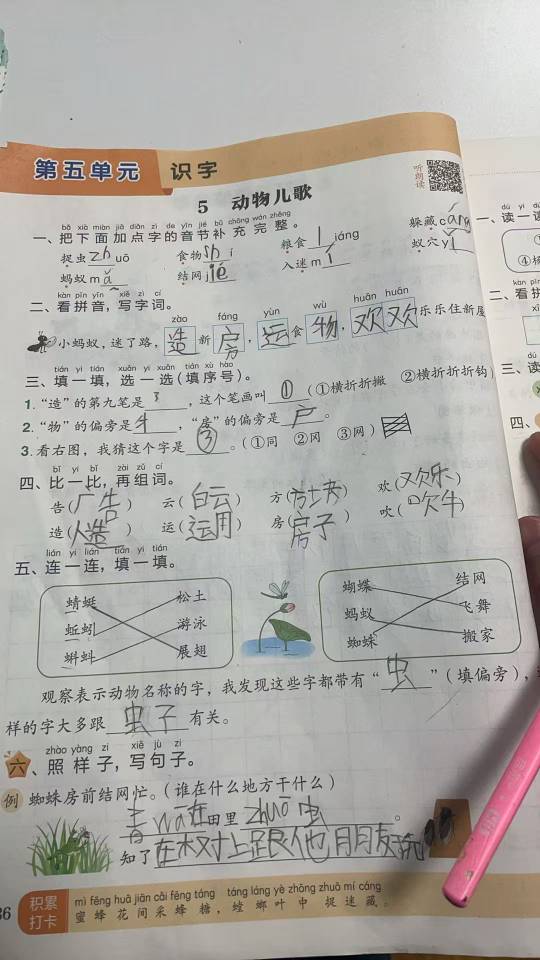 第五单元 识字
听朗读
5 动物儿歌
bǎ xià miàn jiā diǎn zì de yīn jié bǔ chōng wán zhěng
一、把下面加点字的音节补充完整。
捉虫 zhuō 食物 shí 粮食 liáng 躲藏 cáng
蚂蚁 mǎ 结网 jié 入迷 mí 蚁穴 yǐ
kàn pīn yīn xiě zì cí
二、看拼音，写字词。
zào fáng yùn wù huān huān
小蚂蚁，迷了路，造新房，运食物，欢欢乐乐住新屋
tián yi tián xuǎn yi xuǎn tián xù hào
三、填一填，选一选（填序号）。
1.“造”的第九笔是，这个笔画叫①（①横折折撇 ②横折折折钩）
2.“物”的偏旁是牛，“房”的偏旁是户。
3.看右图，我猜这个字是③。（①同 ②冈 ③网）
bǐ yi bǐ zài zǔ cí
四、比一比，再组词。
告(广告) 云(白云) 方(方块) 欢(欢乐)
造(人造) 运(运用) 房(房子) 吹(吹牛)
lián yi lián tián yi tián
五、连一连，填一填。
蜻蜓 松土 蝴蝶 结网
蚯蚓 游泳 蚂蚁 飞舞
蝌蚪 展翅 蜘蛛 搬家
观察表示动物名称的字，我发现这些字都带有“虫”（填偏旁），
样的字大多跟虫子有关。
zhào yàng zi xiě jù zi
六、照样子，写句子。
例 蜘蛛房前结网忙。（谁在什么地方干什么）
青wā在田里zhuō虫。
知了在树上跟他朋友玩
36 积累打卡
mì fēng huā jiān cǎi fēng táng táng láng yè zhōng zhuō mí cáng
蜜蜂花间采蜂糖，螳螂叶中捉迷藏。
dú yi dú
一、读一读
①
④
kàn pīn
二、看拼
xì
dú
三、读
四、